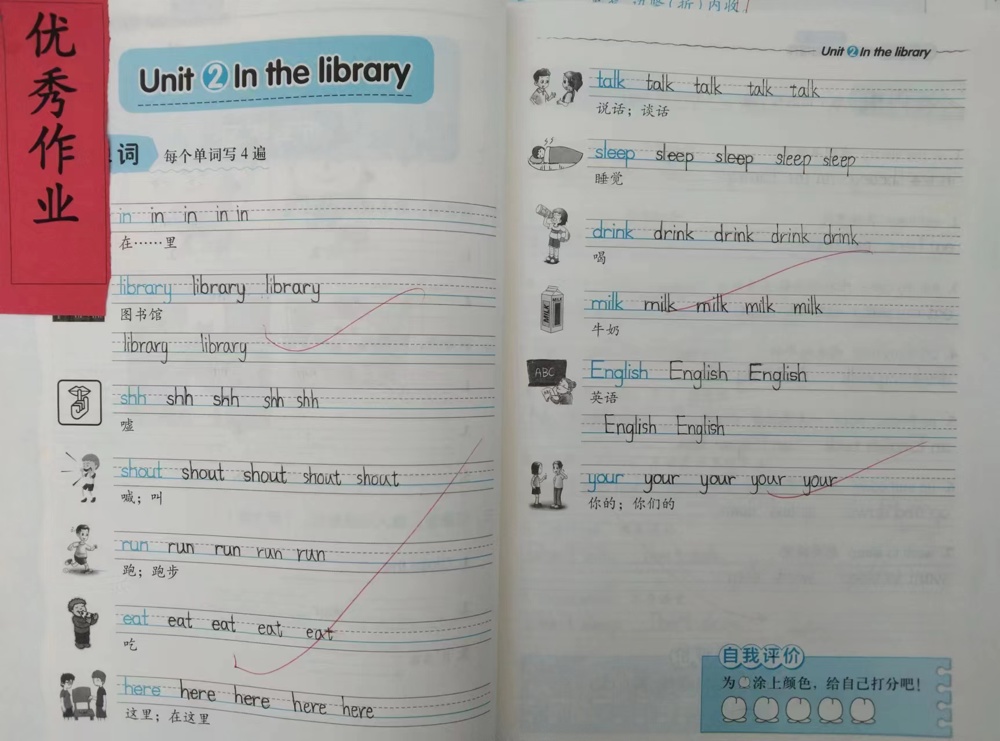 优秀作业
Unit 2 In the library
词 每个单词写4遍
in in in in in
在……里
library library library
图书馆
library library
shh shh shh shh shh
嘘
shout shout shout shout shout
喊；叫
run run run run run
跑；跑步
eat eat eat eat eat
吃
here here here here here
这里；在这里
Unit 2 In the library
talk talk talk talk talk
说话；谈话
sleep sleep sleep sleep sleep
睡觉
drink drink drink drink drink
喝
MILK
milk milk milk milk milk
牛奶
ABC
English English English
英语
English English
your your your your your
你的；你们的
自我评价
为涂上颜色，给自己打分吧！